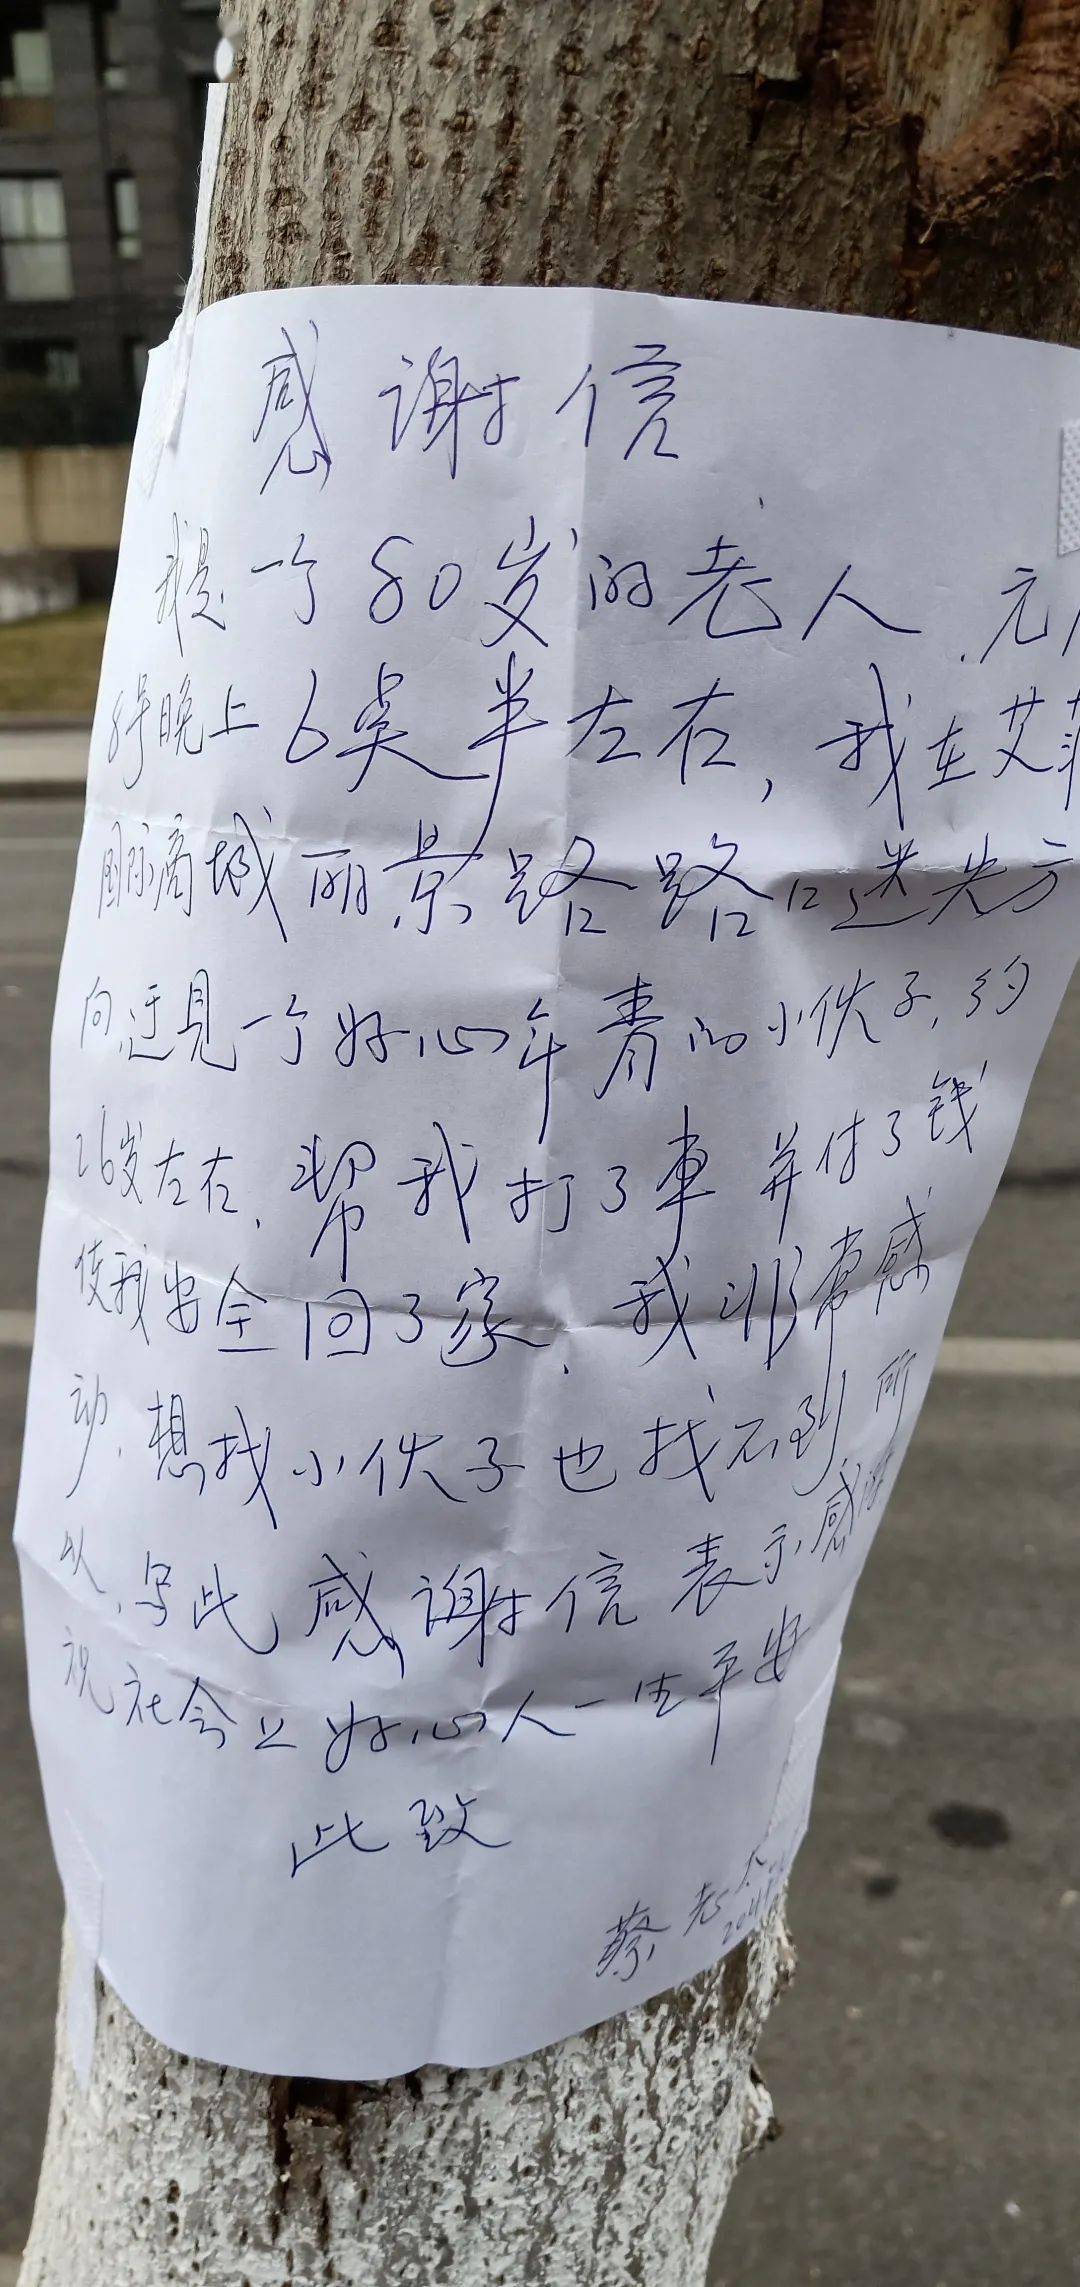 感谢信
我是一个80岁的老人.元月
8号晚上6点半左右,我在艾菲
国际商城丽景路路口迷失方
向,迂见一个好心年青的小伙子,约
26岁左右,帮我打了車并付了钱
使我安全回了家.我非常感
动.想找小伙子也找不到所
以.写此感谢信表示感谢
祝社会上好心人一生平安
此致
蔡老太